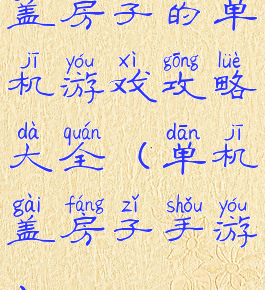 盖房子的单
jī yóu xì gōng lüè
机游戏攻略
dà quán dān jī
大全(单机
gài fáng zǐ shǒu yóu
盖房子手游